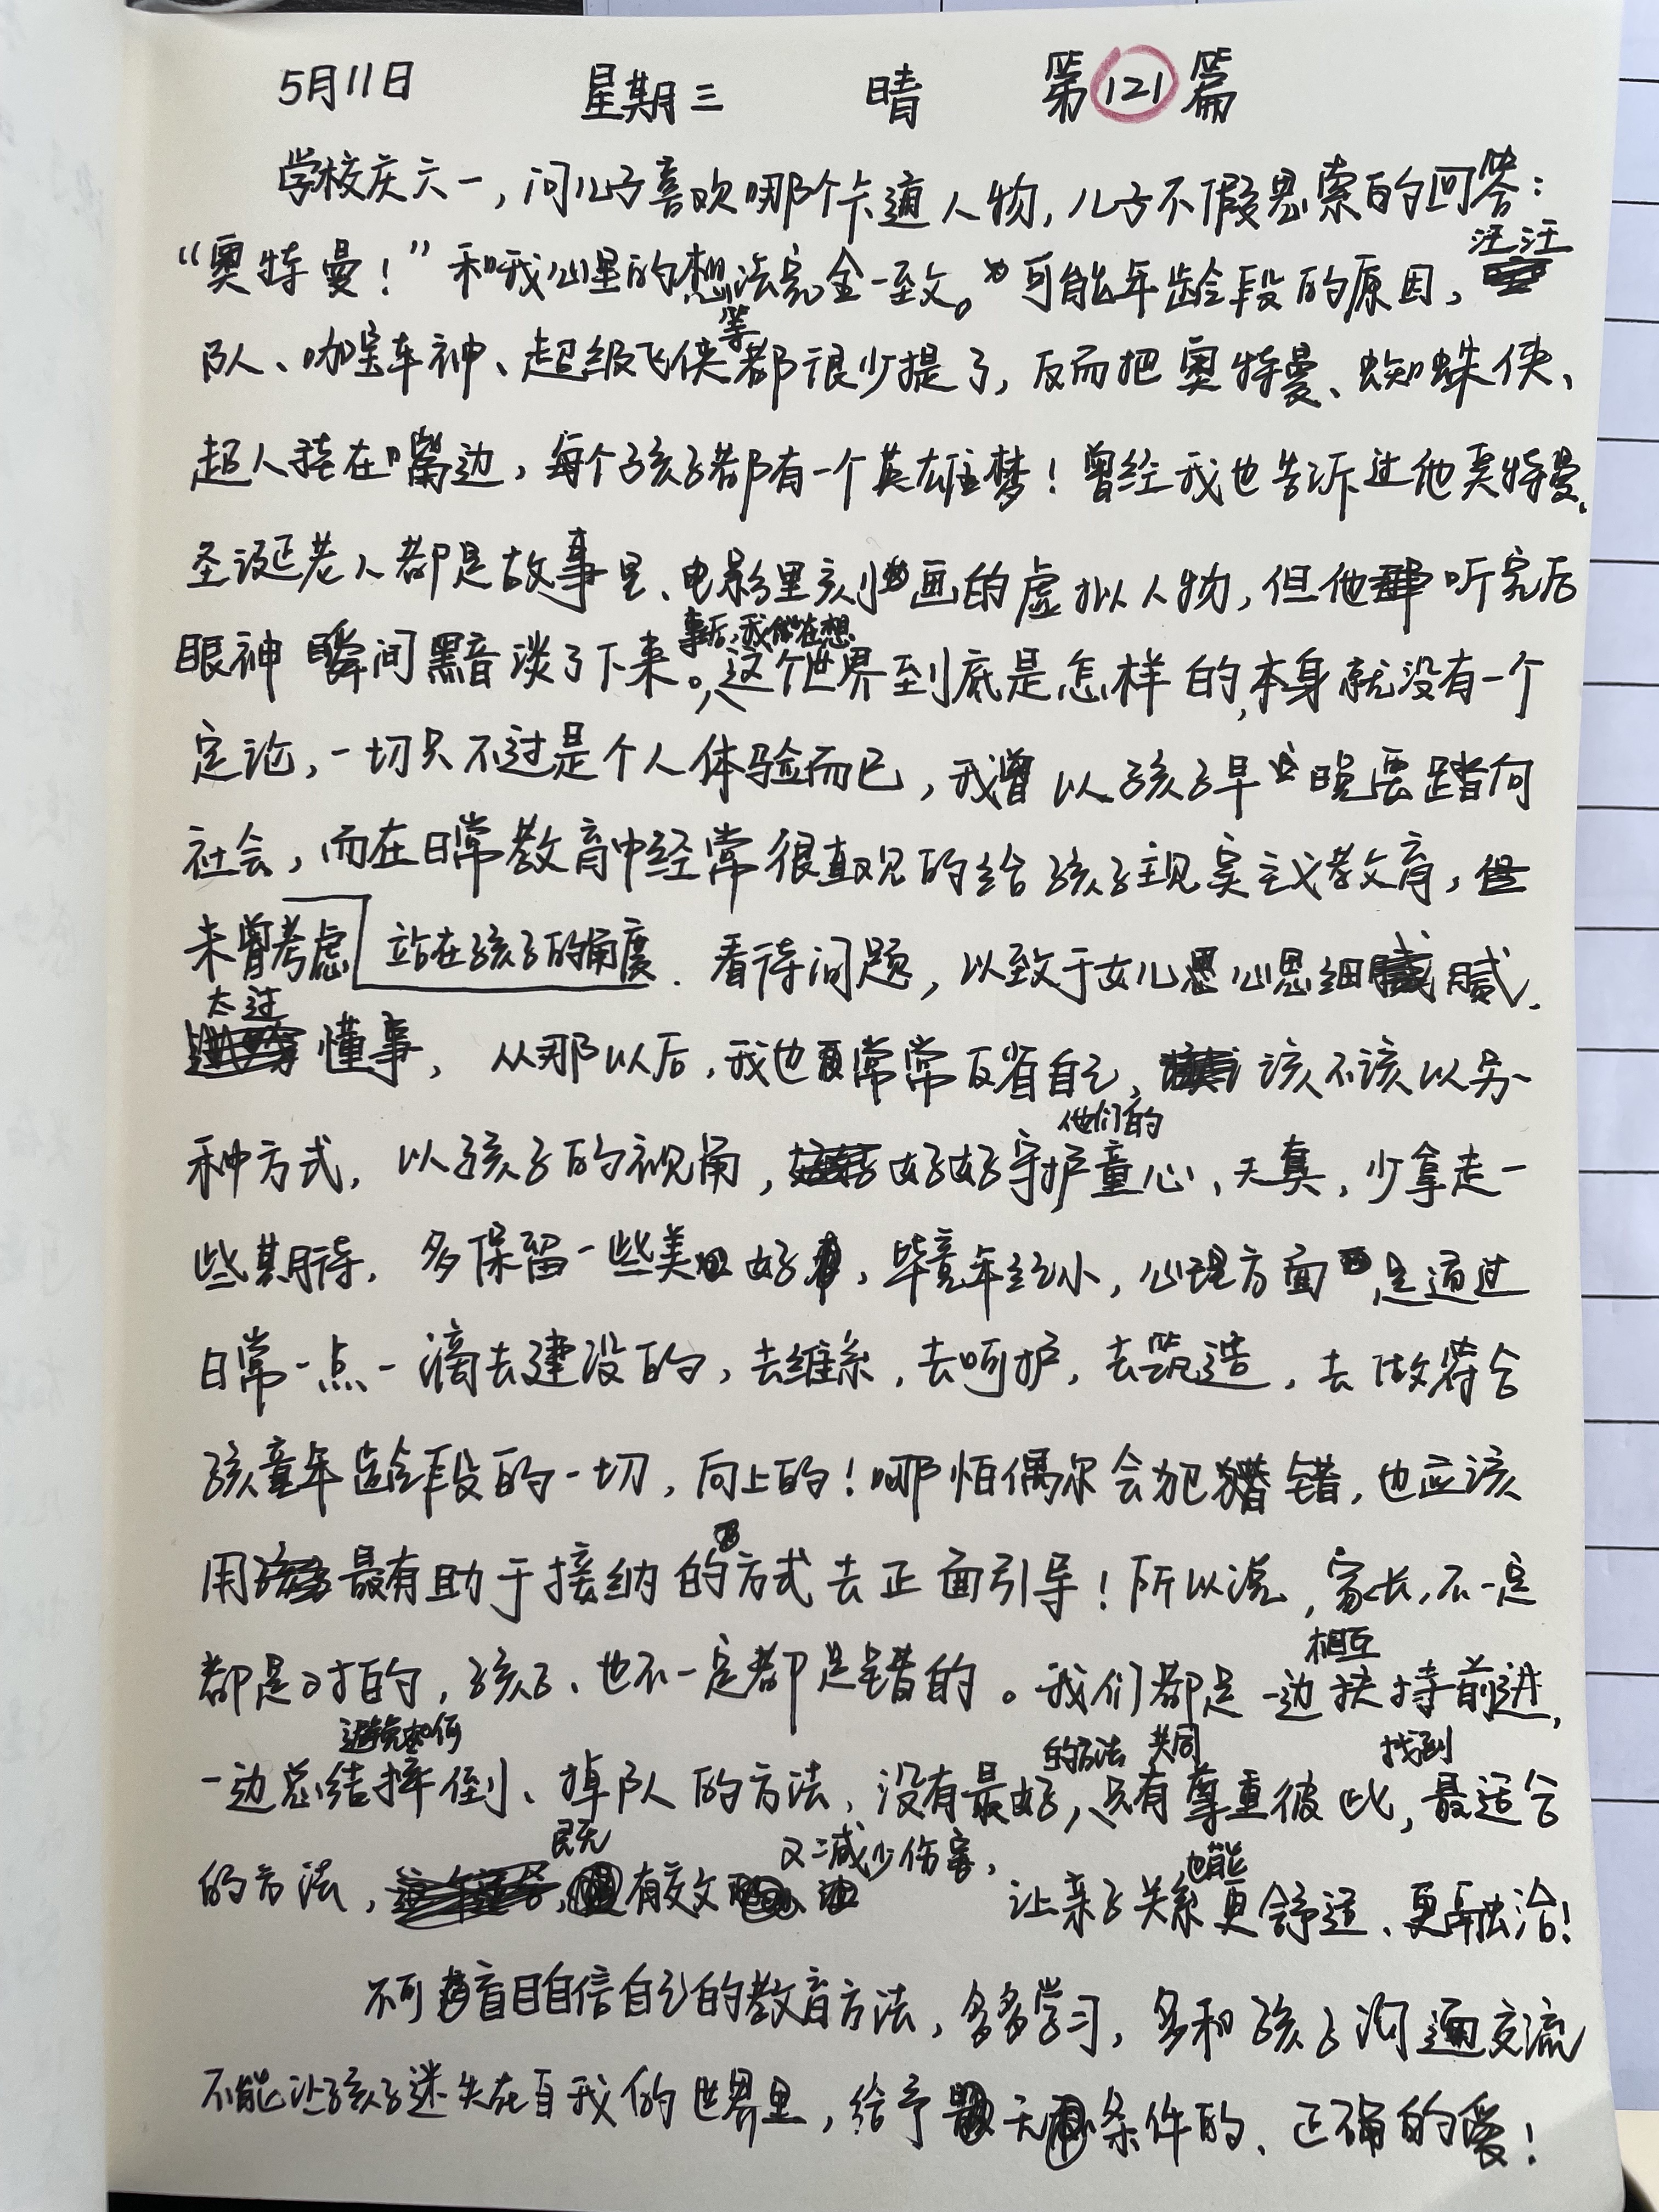 5月11日 星期三 晴 第121篇
学校庆六一，问儿子喜欢哪个卡通人物，儿子不假思索的回答：
“奥特曼！”和我心里的想法完全一致。可能年龄段的原因，汪汪
队、咖宝车神、超级飞侠等都很少提了，反而把奥特曼、蜘蛛侠、
超人挂在嘴边，每个孩子都有一个英雄梦！曾经我也告诉过他奥特曼、
圣诞老人都是故事里、电影里刻画的虚拟人物，但他听完后
眼神瞬间黯淡了下来。事后，我在想这个世界到底是怎样的，本身就没有一个
定论，一切只不过是个人体验而已，我曾以孩子早晚要踏向
社会，而在日常教育中经常很直观的给孩子现实主义教育，
未曾考虑站在孩子的角度看待问题，以致于女儿心思细腻、
太过懂事，从那以后，我也常常反省自己，该不该以另一
种方式，以孩子的视角，好好守护他们的童心、天真，少拿走一
些期待，多保留一些美好，毕竟年纪小，心理方面是通过
日常一点一滴去建设的，去维系，去呵护，去筑造，去做符合
孩童年龄段的一切，向上的！哪怕偶尔会犯错，也应该
用最有助于接纳的方式去正面引导！所以说，家长，不一定
都是对的，孩子、也不一定都是错的。我们都是一边相互扶持前进，
一边总结避免如何摔倒、掉队的方法，没有最好的方法，只有共同尊重彼此，找到最适合
的方法，既有效又减少伤害，让亲子关系也能更舒适、更融洽！
不可盲目自信自己的教育方法，多多学习，多和孩子沟通交流
不能让孩子迷失在自我的世界里，给予无条件的、正确的爱！